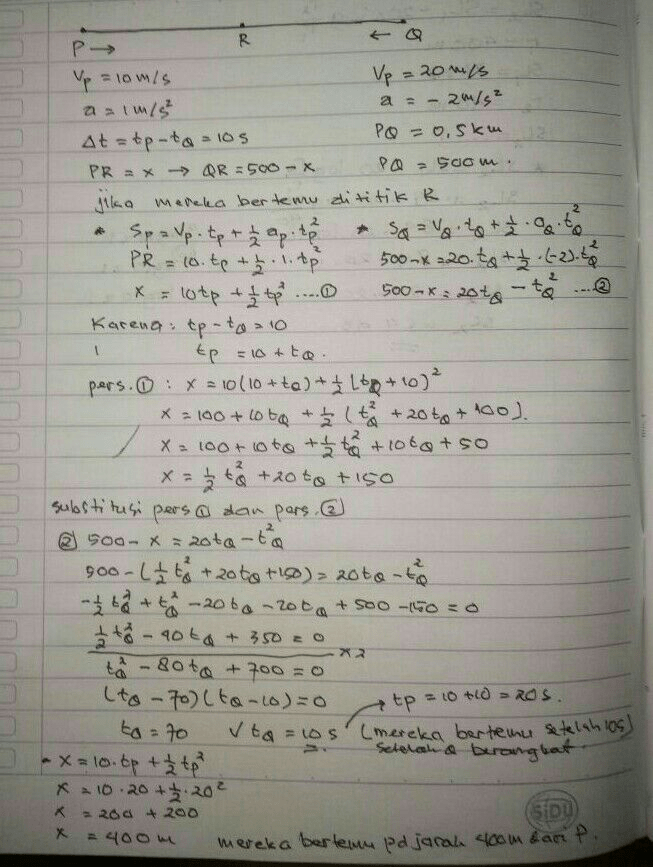 P → R ← Q
Vp = 10 m/s Vp = 20 m/s
a = 1 m/s² a = - 2m/s²
Δt = tp - tQ = 10 s PQ = 0,5 km
PR = x → QR = 500 - x PQ = 500 m.
jika mereka bertemu dititik R
* Sp = Vp . tp + 1/2 ap . tp² * SQ = VQ . tQ + 1/2 . aQ . tQ²
PR = 10 . tp + 1/2 . 1 . tp² 500 - x = 20 . tQ + 1/2 . (-2) . tQ²
x = 10tp + 1/2 tp² ....① 500 - x = 20tQ - tQ² ....②
Karena : tp - tQ = 10
tp = 10 + tQ.
pers. ① : x = 10(10 + tQ) + 1/2 (tQ + 10)²
x = 100 + 10tQ + 1/2 (tQ² + 20tQ + 100).
x = 100 + 10tQ + 1/2 tQ² + 10tQ + 50
x = 1/2 tQ² + 20tQ + 150
substitusi pers ① dan pers. ②
② 500 - x = 20tQ - tQ²
500 - (1/2 tQ² + 20tQ + 150) = 20tQ - tQ²
-1/2 tQ² + tQ² - 20tQ - 20tQ + 500 - 150 = 0
1/2 tQ² - 40tQ + 350 = 0
x 2
tQ² - 80tQ + 700 = 0
(tQ - 70)(tQ - 10) = 0 → tp = 10 + 10 = 20 s.
tQ = 70 √ tQ = 10 s (mereka bertemu setelah 10s)
setelah Q berangkat.
- x = 10 . tp + 1/2 tp²
x = 10 . 20 + 1/2 . 20²
x = 200 + 200
x = 400 m mereka bertemu pd jarak 400m dari P.
SiDU